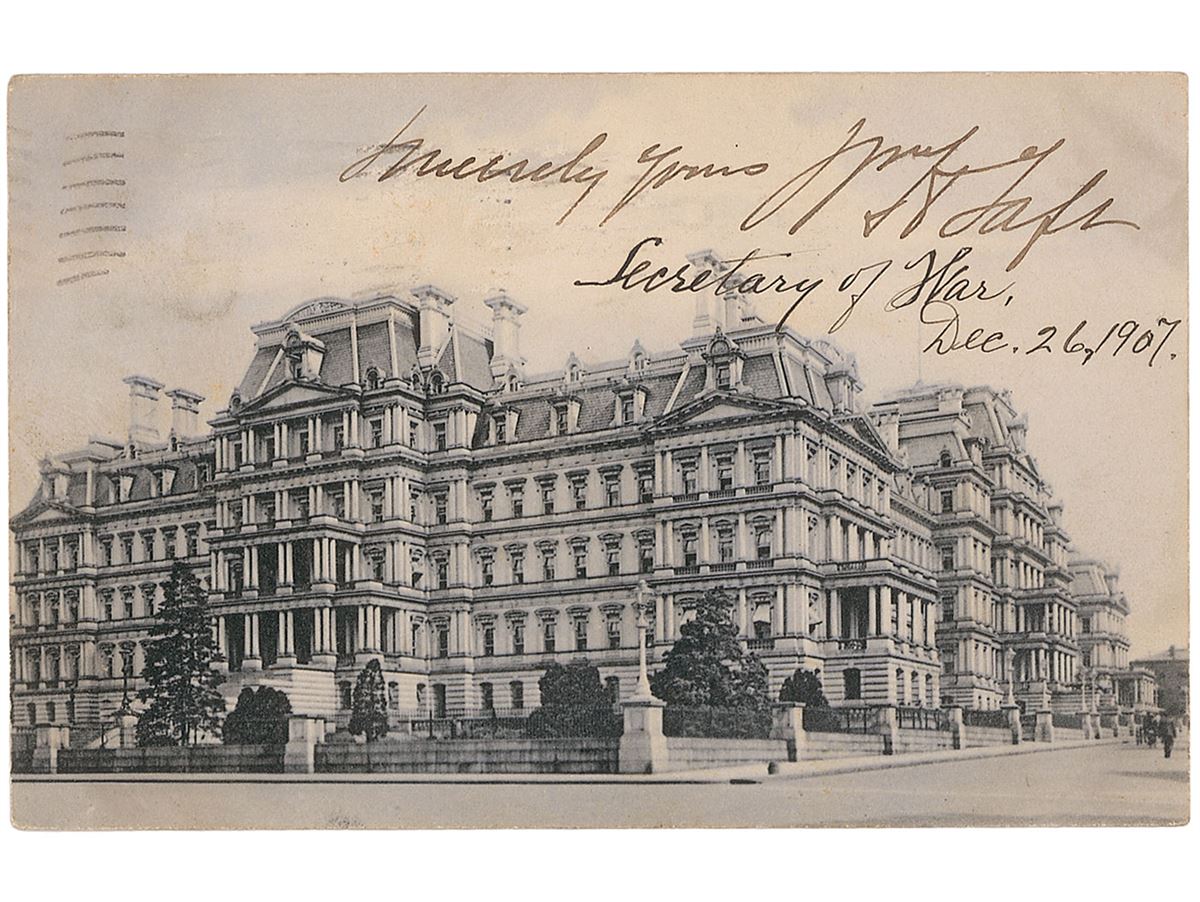 Sincerely yours Wm H Taft
Secretary of War,
Dec. 26, 1907.